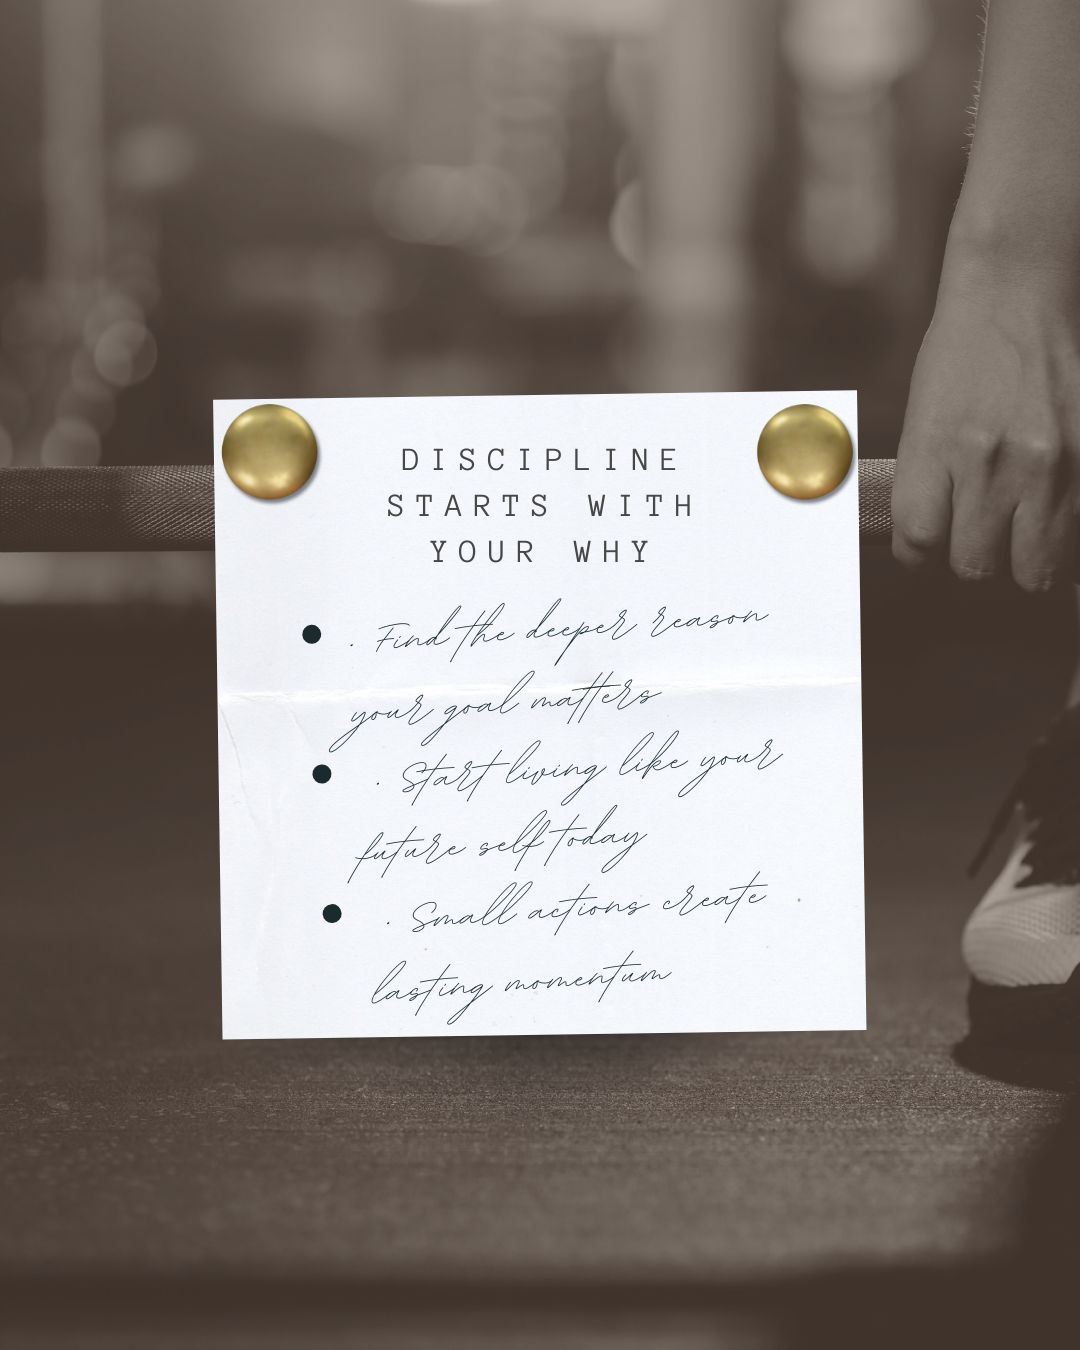 DISCIPLINE
STARTS WITH
YOUR WHY
• . Find the deeper reason
your goal matters
• . Start living like your
future self today
• . Small actions create
lasting momentum